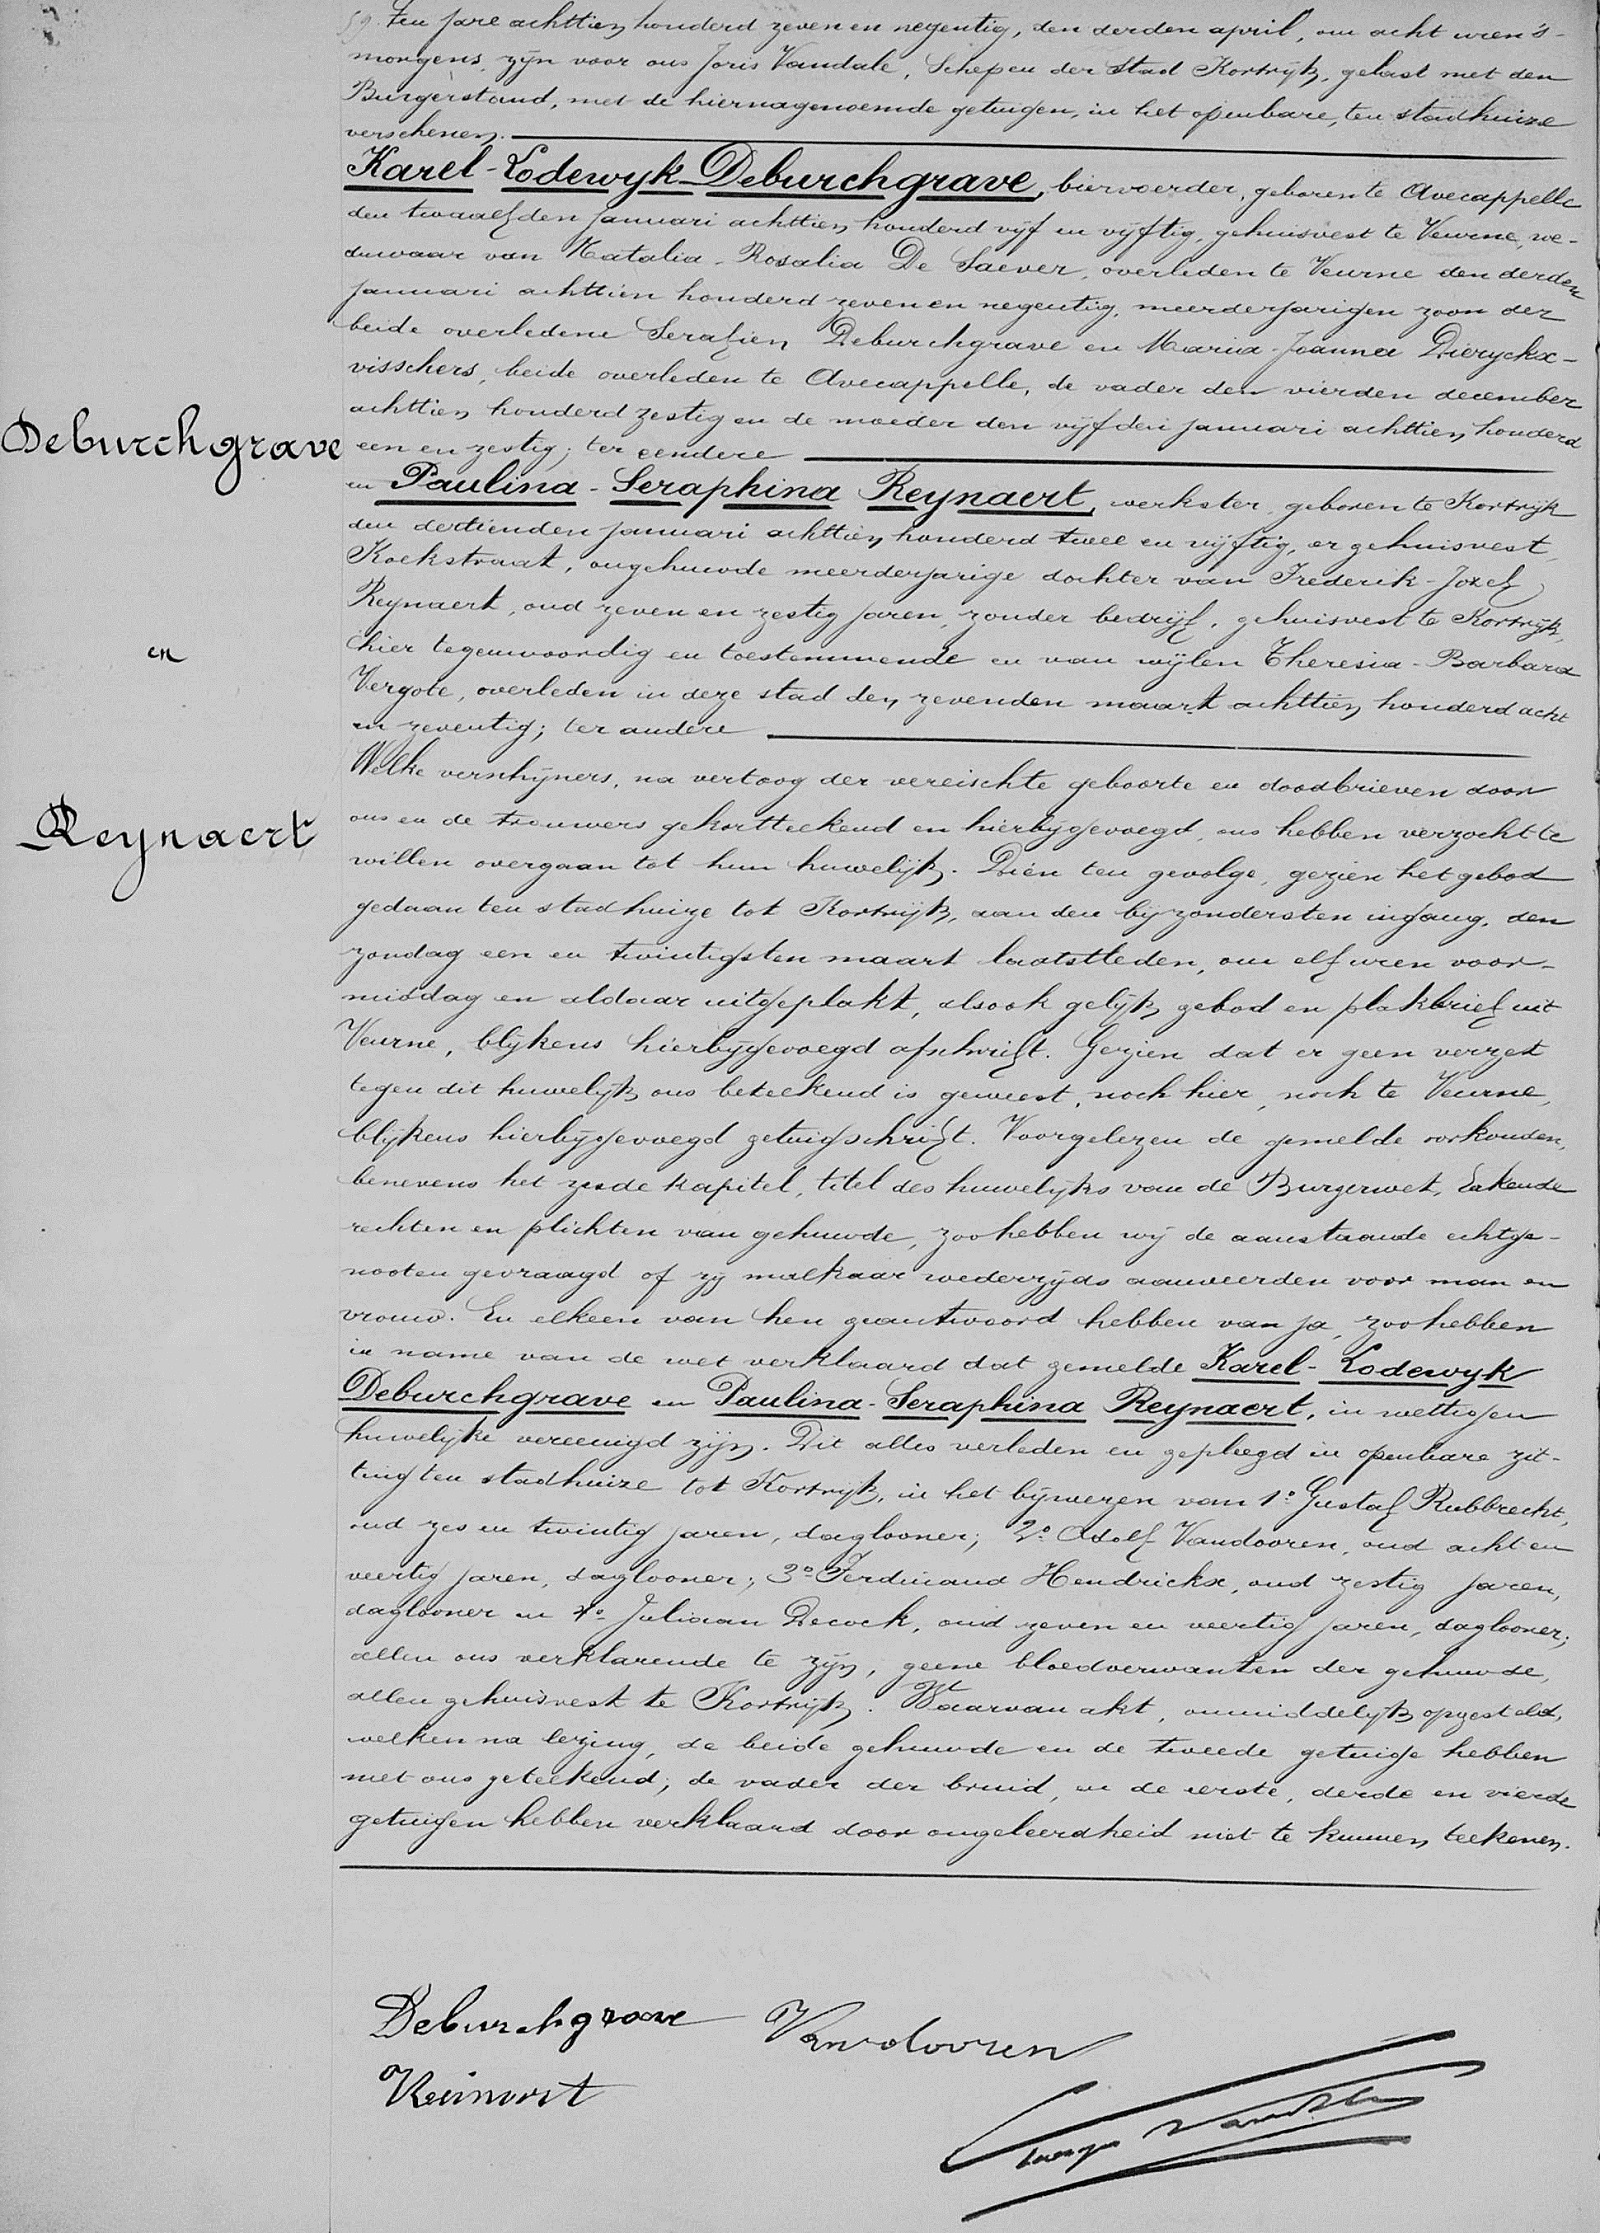 59. Ten jare achttien honderd zeven en negentig, den derden april, om acht uren 's-
morgens, zijn voor ons Joris Vandale, Schepen der Stad Kortrijk, gelast met den
Burgerstand, met de hiernagenoemde getuigen, in het openbare, ten stadhuize
verschenen.
Karel-Lodewyk Deburchgrave, biervoerder, geboren te Avecappelle
den twaalfden januari achttien honderd vijf en vijftig, gehuisvest te Veurne, we-
duwaar van Natalia-Rosalia De Saever, overleden te Veurne den derden
januari achttien honderd zeven en negentig, meerderjarigen zoon der
beide overledene Serafien Deburchgrave en Maria-Joanna Dieryckx-
visschers, beide overleden te Avecappelle, de vader den vierden december
achttien honderd zestig en de moeder den vijfden januari achttien honderd
Deburchgrave
een en zestig; ter eendere
en Paulina-Seraphina Reynaert, werkster, geboren te Kortrijk
den dertienden januari achttien honderd twee en vijftig, er gehuisvest,
Koekstraat, ongehuwde meerderjarige dochter van Frederik-Jozef
Reynaert, oud zeven en zestig jaren, zonder bedrijf, gehuisvest te Kortrijk,
en
hier tegenwoordig en toestemmende en van wijlen Theresia-Barbara
Vergote, overleden in deze stad den zevenden maart achttien honderd acht
en zeventig; ter andere
Welke verschijners, na vertoog der vereischte geboorte en doodbrieven door
Reynaert
ons en de trouwers gekortteekend en hierbijgevoegd, ons hebben verzocht te
willen overgaan tot hun huwelijk. Dien ten gevolge, gezien het gebod
gedaan ten stadhuize tot Kortrijk, aan den bijzondersten ingang, den
zondag een en twintigsten maart laatstleden, om elf uren voor-
middag en aldaar uitgeplakt, alsook gelijk gebod en plakbrief uit
Veurne, blijkens hierbijgevoegd afschrift. Gezien dat er geen verzet
tegen dit huwelijk ons beteekend is geweest, noch hier, noch te Veurne,
blijkens hierbijgevoegd getuigschrift. Voorgelezen de gemelde oorkonden,
benevens het zesde kapitel, titel des huwelijks van de Burgerwet, rakende
rechten en plichten van gehuwde, zoo hebben wij de aanstaande echtge-
nooten gevraagd of zij malkaar wederzijds aanveerden voor man en
vrouw. En elkeen van hen geantwoord hebben van ja, zoo hebben
in name van de wet verklaard dat gemelde Karel-Lodewyk
Deburchgrave en Paulina-Seraphina Reynaert, in wettigen
huwelijke vereenigd zijn. Dit alles verleden en gepleegd in openbare zit-
ting ten stadhuize tot Kortrijk, in het bijwezen van 1° Gustaf Rubbrecht,
oud zes en twintig jaren, daglooner; 2° Adolf Vandooren, oud acht en
veertig jaren, daglooner; 3° Ferdinand Hendrickx, oud zestig jaren,
daglooner en 4° Juliaan Decock, oud zeven en veertig jaren, daglooner;
allen ons verklarende te zijn, geene bloedverwanten der gehuwde,
allen gehuisvest te Kortrijk. Waarvan akt, onmiddelijk opgesteld,
welken na lezing, de beide gehuwde en de tweede getuige hebben
met ons geteekend; de vader der bruid, en de eerste, derde en vierde
getuigen hebben verklaard door ongeleerdheid niet te kunnen teekenen.
Deburchgrave Vandooren
Reinart